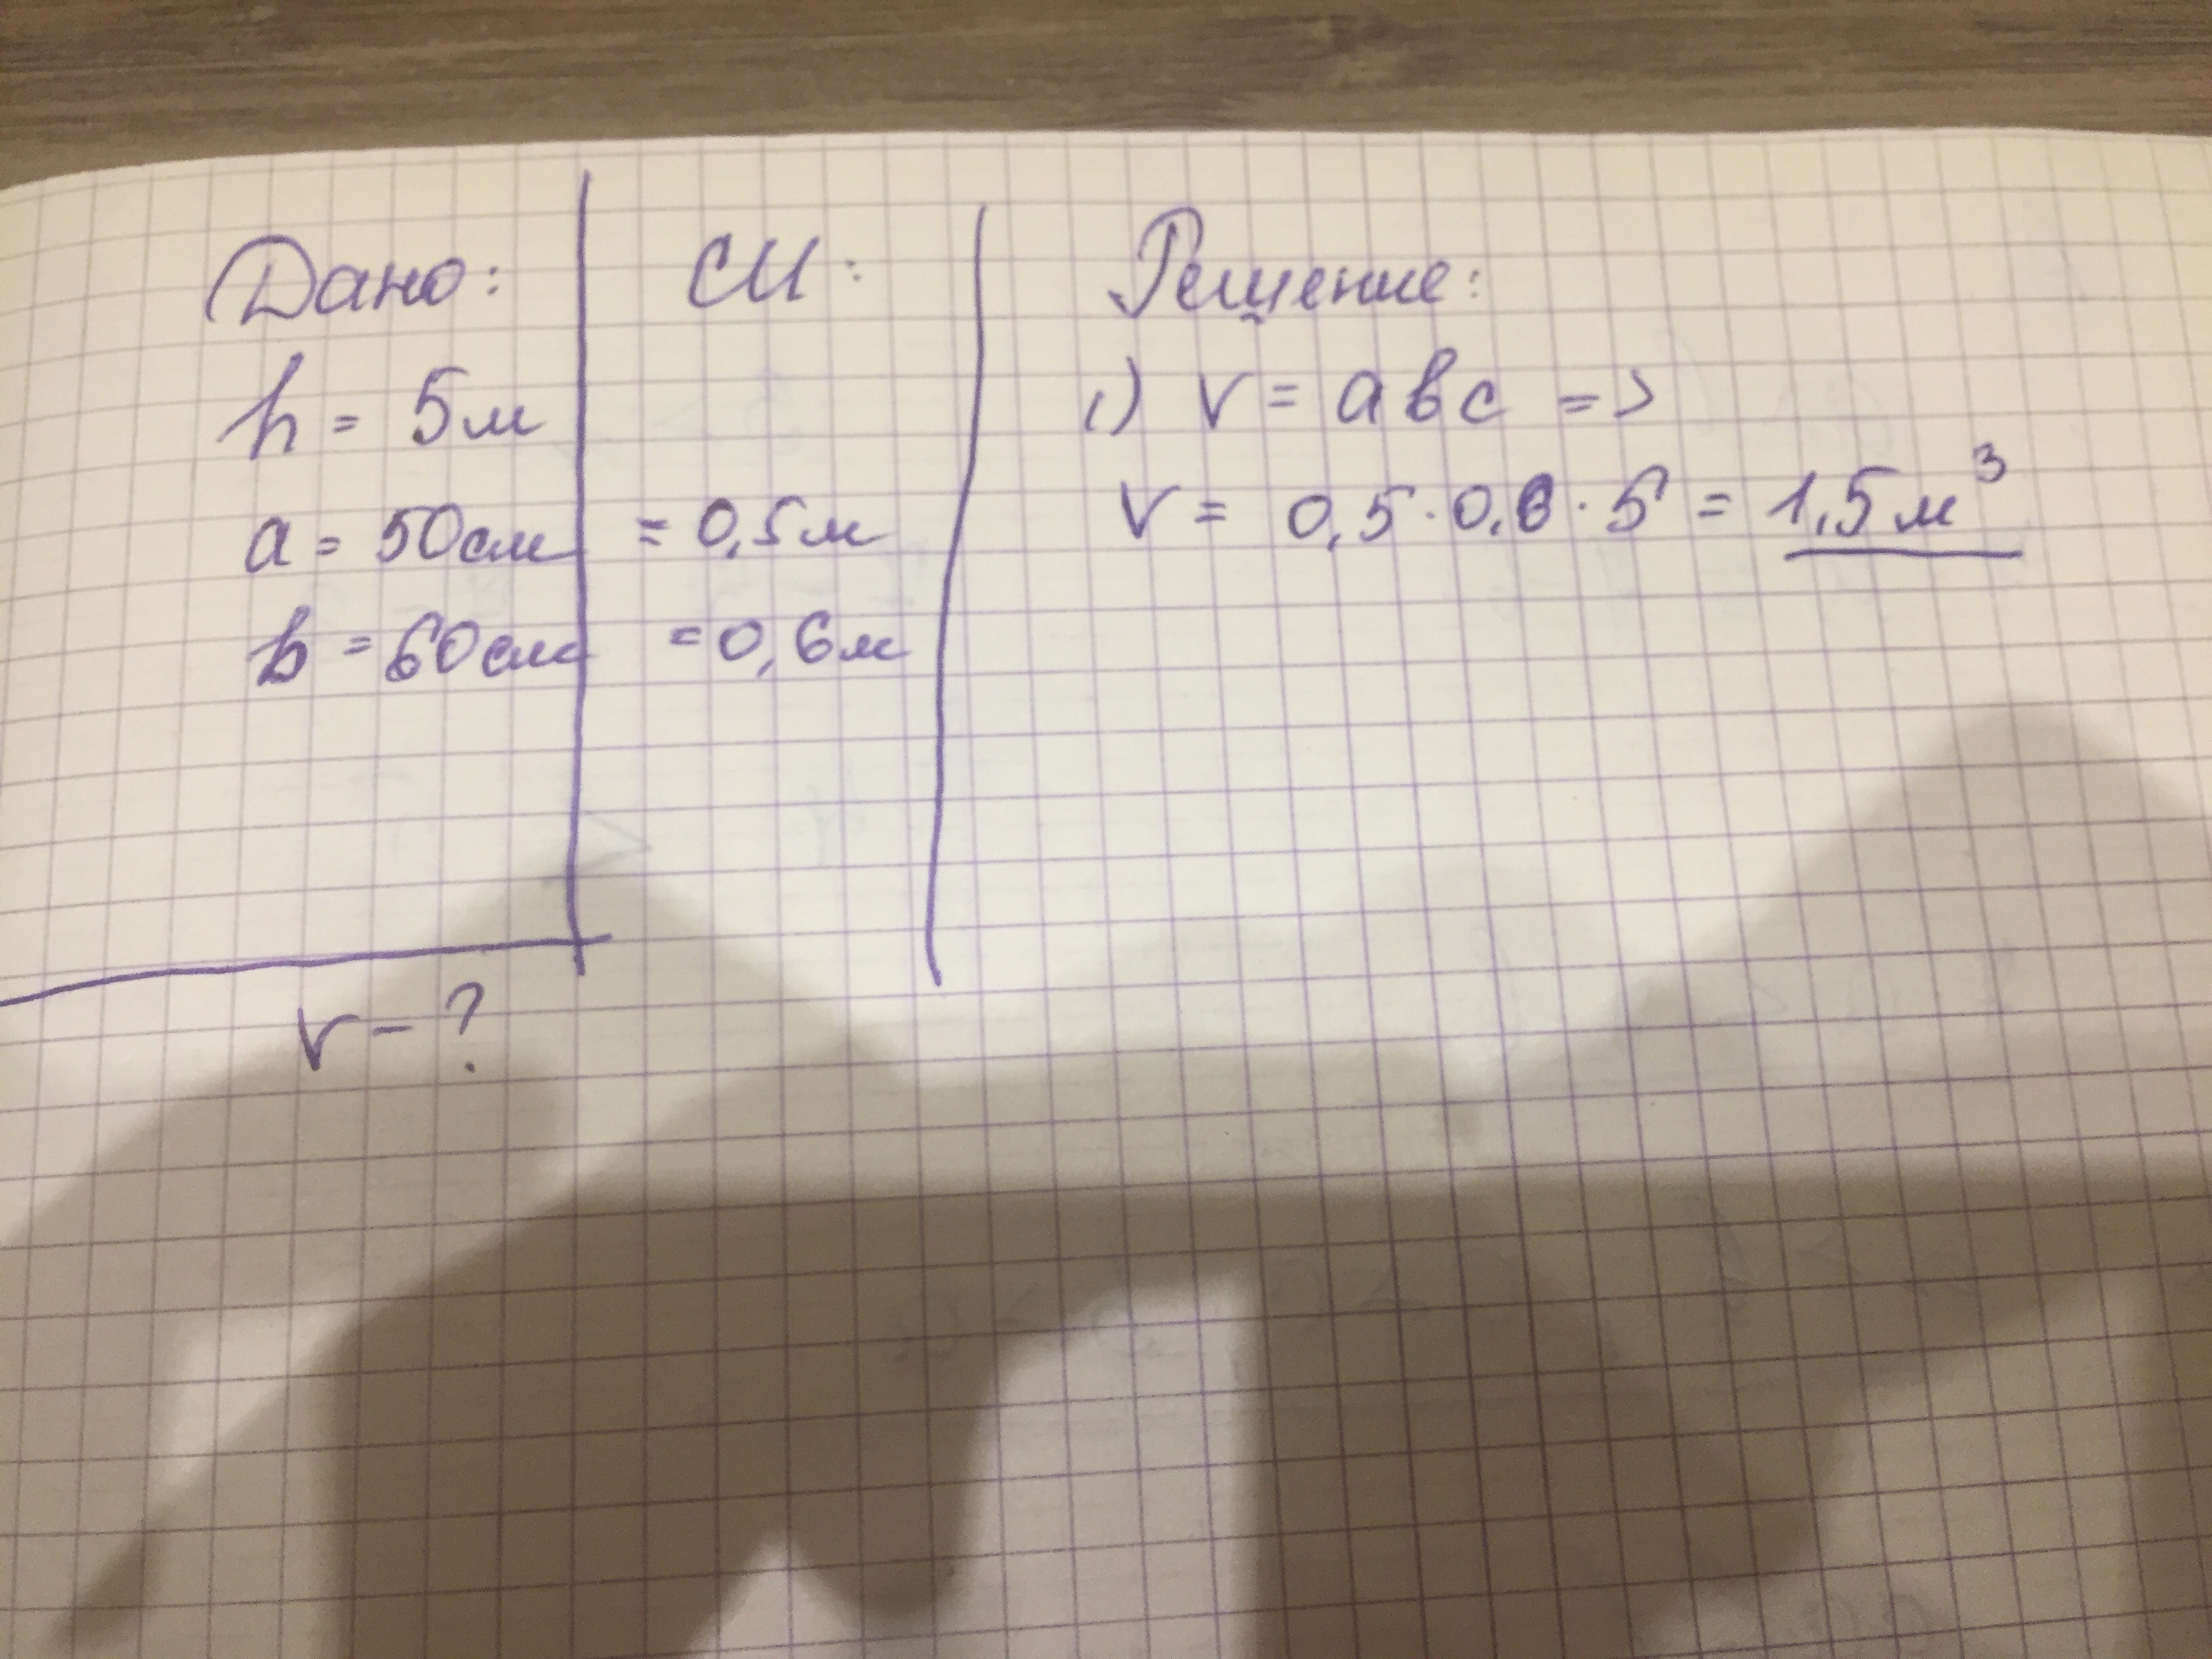 Дано:
h = 5м
a = 50см
b = 60см
V - ?
СИ:
= 0,5м
= 0,6м
Решение:
1) V = abc =>
V = 0,5 · 0,6 · 5 = 1,5 м³